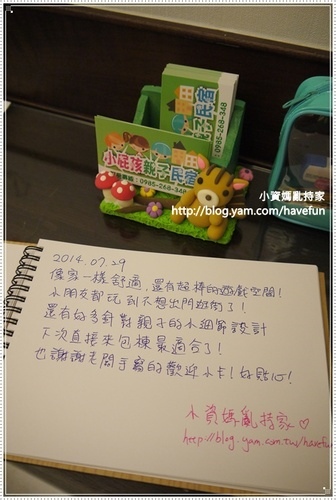 親子民宿
0985-268-348
小庭孩親子民宿
0985-268-348
小資媽亂持家
http://blog.yam.com/havefun
2014.07.29
像家一樣舒適,還有超棒的遊戲空間!
小朋友都玩到不想出門逛街了!
還有好多針對親子的小細節設計
下次直接來包棟最適合了!
也謝謝老闆手寫的歡迎小卡!好貼心!
小資媽亂持家♡
http://blog.yam.com.tw/havefun